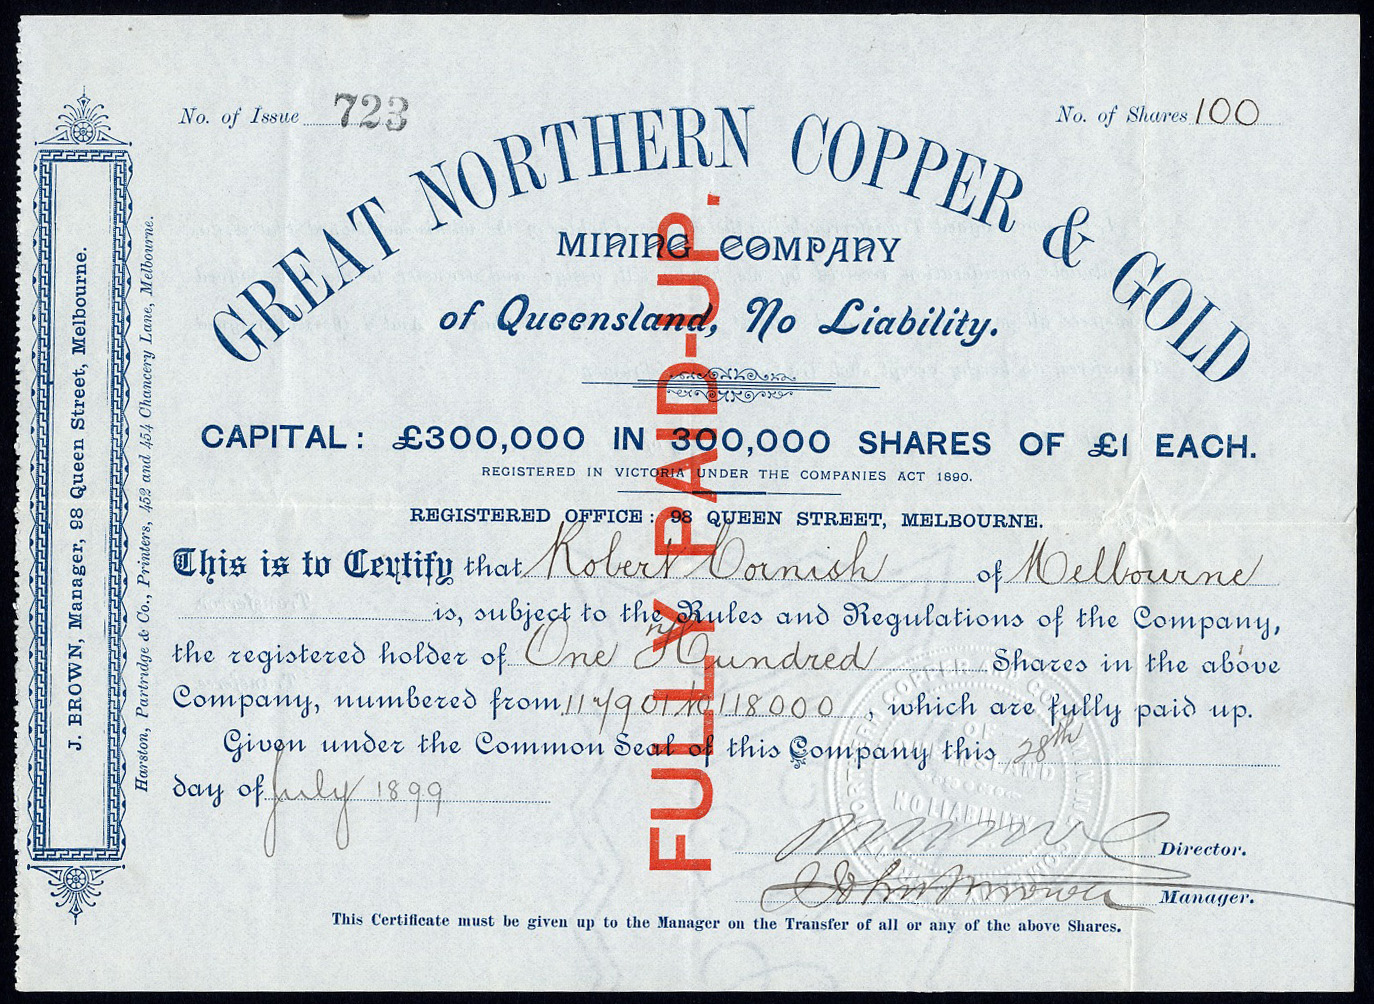 No. of Issue 723
No. of Shares 100
GREAT NORTHERN COPPER & GOLD
MINING COMPANY
of Queensland, No Liability.
CAPITAL: £300,000 IN 300,000 SHARES OF £1 EACH.
REGISTERED IN VICTORIA UNDER THE COMPANIES ACT 1890.
REGISTERED OFFICE: 98 QUEEN STREET, MELBOURNE.
This is to Certify that Robert Cornish of Melbourne
is, subject to the Rules and Regulations of the Company,
the registered holder of One Hundred Shares in the above
Company, numbered from 117901 to 118000, which are fully paid up.
Given under the Common Seal of this Company this 28th
day of July 1899
Director.
Manager.
This Certificate must be given up to the Manager on the Transfer of all or any of the above Shares.
FULLY PAID-UP.
J. BROWN, Manager, 98 Queen Street, Melbourne.
Harston, Partridge & Co., Printers, 452 and 454 Chancery Lane, Melbourne.
NO LIABILITY